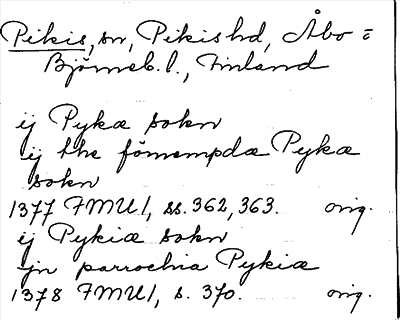 Pikis, sn, Pikis hd, Åbo =
Björneb. l., Finland
ij Pykæ sokn
ij the förnempdæ Pykæ
sokn
1377 FMU I, ss. 362, 363. orig.
ij Pykiæ sokn
jn parrochia Pykiæ
1378 FMU I, s. 370. orig.